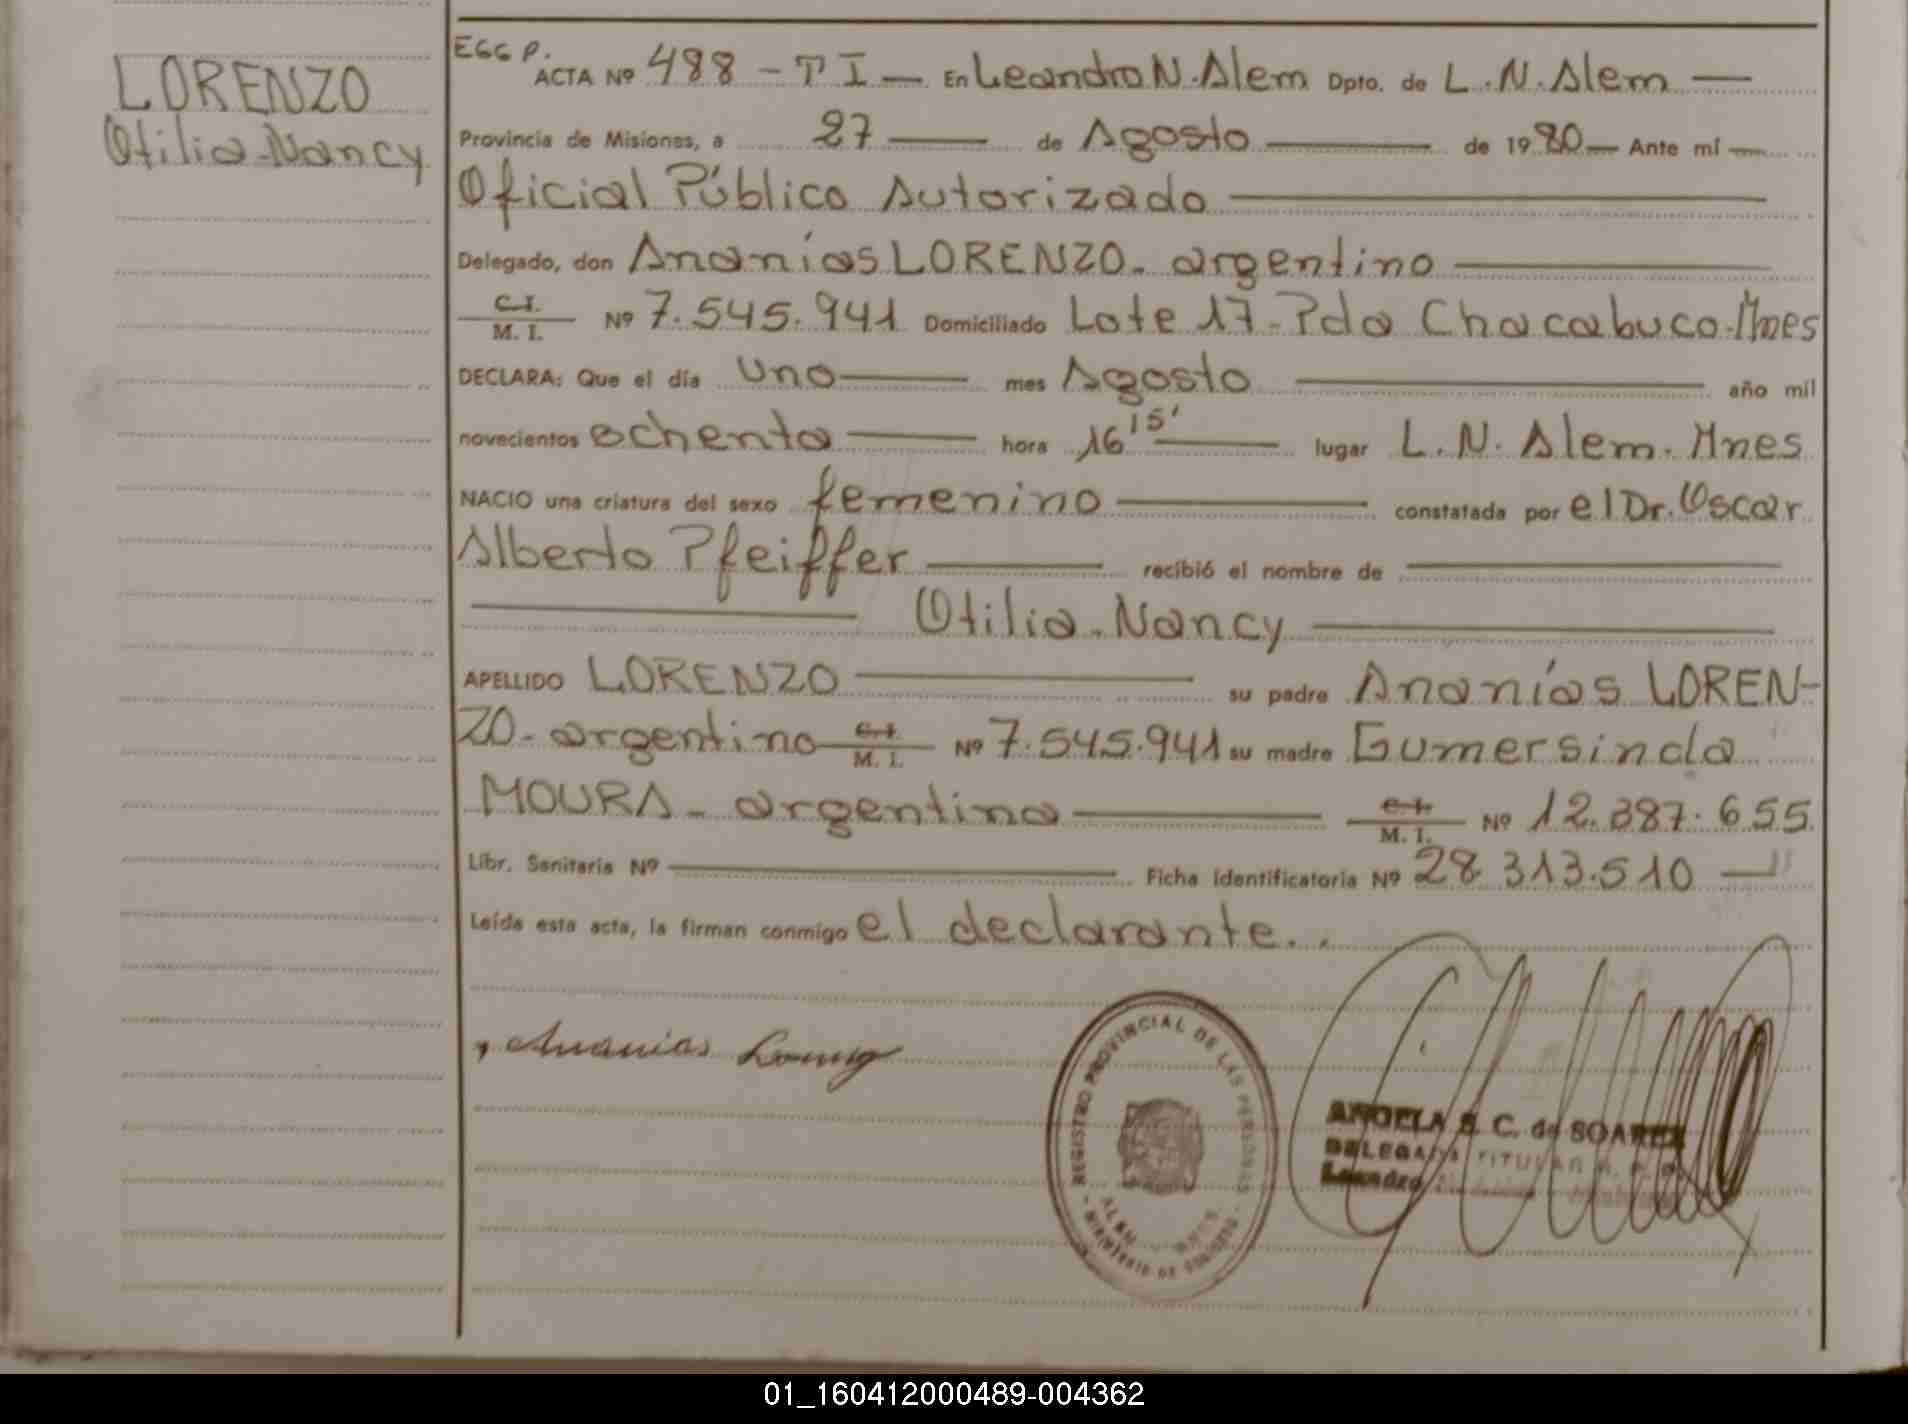 LORENZO
Otilia-Nancy
EGG P.
ACTA Nº 488 - T I — En Leandro N. Alem Dpto. de L. N. Alem —
Provincia de Misiones, a 27 — de Agosto — de 1980 — Ante mí —
Oficial Público Autorizado —
Delegado, don Ananías LORENZO - argentino —
C.I.
M. I. Nº 7.545.941 Domiciliado Lote 17 - Pda Chacabuco - Mnes
DECLARA: Que el día uno — mes Agosto — año mil
novecientos ochenta — hora 16 15' — lugar L. N. Alem. Mnes
NACIO una criatura del sexo femenino — constatada por el Dr. Oscar
Alberto Pfeiffer — recibió el nombre de —
— Otilia - Nancy —
APELLIDO LORENZO — su padre Ananías LOREN-
ZO - argentino C.I. M. I. Nº 7.545.941 su madre Gumersinda
MOURA - argentina — C.I. M. I. Nº 12.387.655
Libr. Sanitaria Nº — Ficha identificatoria Nº 28.313.510 —
Leída esta acta, la firman conmigo el declarante..
Ananias Lorenzo
REGISTRO PROVINCIAL DE LAS PERSONAS
ALEM MNES
- MINISTERIO DE GOBIERNO -
ANGELA B. C. de SOAREZ
DELEGADA TITULAR R. P. P.
Leandro
01_160412000489-004362